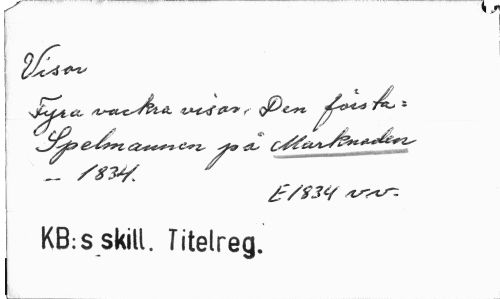 Visor
Fyra vackra visor, Den första:
Spelmannen på Marknaden
— 1834.
E1834 v.v.
KB:s skill. Titelreg.